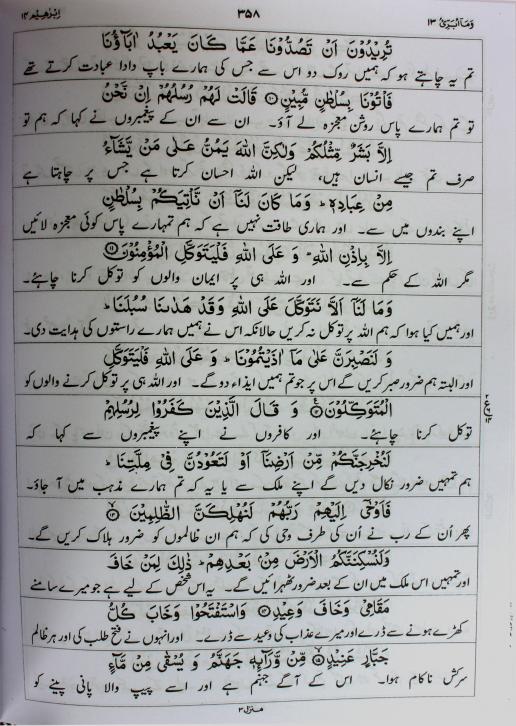 وَمَآ اُبَرِّئُ ١٣ ٣٥٨ اِبْرٰهِيْم ١٤
تُرِيْدُوْنَ اَنْ تَصُدُّوْنَا عَمَّا كَانَ يَعْبُدُ اٰبَآؤُنَا
تم یہ چاہتے ہو کہ ہمیں روک دو اس سے جس کی ہمارے باپ دادا عبادت کرتے تھے
فَاْتُوْنَا بِسُلْطٰنٍ مُّبِيْنٍ ۝١٠ قَالَتْ لَهُمْ رُسُلُهُمْ اِنْ نَّحْنُ
تو تم ہمارے پاس روشن معجزہ لے آؤ۔ ان سے ان کے پیغمبروں نے کہا کہ ہم تو
اِلَّا بَشَرٌ مِّثْلُكُمْ وَلٰكِنَّ اللّٰهَ يَمُنُّ عَلٰى مَنْ يَّشَآءُ
صرف تم جیسے انسان ہیں، لیکن اللہ احسان کرتا ہے جس پر چاہتا ہے
مِنْ عِبَادِهٖ ؕ وَمَا كَانَ لَنَآ اَنْ نَّاْتِيَكُمْ بِسُلْطٰنٍ
اپنے بندوں میں سے۔ اور ہماری طاقت نہیں ہے کہ ہم تمہارے پاس کوئی معجزہ لائیں
اِلَّا بِاِذْنِ اللّٰهِ ؕ وَ عَلَى اللّٰهِ فَلْيَتَوَكَّلِ الْمُؤْمِنُوْنَ ۝١١
مگر اللہ کے حکم سے۔ اور اللہ ہی پر ایمان والوں کو توکل کرنا چاہئے۔
وَ مَا لَنَآ اَلَّا نَتَوَكَّلَ عَلَى اللّٰهِ وَ قَدْ هَدٰىنَا سُبُلَنَا ؕ
اور ہمیں کیا ہوا کہ ہم اللہ پر توکل نہ کریں حالانکہ اس نے ہمیں ہمارے راستوں کی ہدایت دی۔
وَ لَنَصْبِرَنَّ عَلٰى مَآ اٰذَيْتُمُوْنَا ؕ وَ عَلَى اللّٰهِ فَلْيَتَوَكَّلِ
اور البتہ ہم ضرور صبر کریں گے اس پر جو تم ہمیں ایذاء دو گے۔ اور اللہ ہی پر توکل کرنے والوں کو
الْمُتَوَكِّلُوْنَ ۝ وَ قَالَ الَّذِيْنَ كَفَرُوْا لِرُسُلِهِمْ
توکل کرنا چاہئے۔ اور کافروں نے اپنے پیغمبروں سے کہا کہ
لَنُخْرِجَنَّكُمْ مِّنْ اَرْضِنَآ اَوْ لَتَعُوْدُنَّ فِيْ مِلَّتِنَا ؕ
ہم تمہیں ضرور نکال دیں گے اپنے ملک سے یا یہ کہ تم ہمارے مذہب میں آ جاؤ۔
فَاَوْحٰٓى اِلَيْهِمْ رَبُّهُمْ لَنُهْلِكَنَّ الظّٰلِمِيْنَ ۝
پھر اُن کے رب نے اُن کی طرف وحی کی کہ ہم ان ظالموں کو ضرور ہلاک کریں گے۔
وَلَنُسْكِنَنَّكُمُ الْاَرْضَ مِنْۢ بَعْدِهِمْ ؕ ذٰلِكَ لِمَنْ خَافَ
اور تمہیں اس ملک میں ان کے بعد ضرور ٹھہرائیں گے۔ یہ اس شخص کے لیے ہے جو میرے سامنے
مَقَامِيْ وَ خَافَ وَعِيْدِ ۝ وَاسْتَفْتَحُوْا وَ خَابَ كُلُّ
کھڑے ہونے سے ڈرے اور میرے عذاب کی وعید سے ڈرے۔ اور انہوں نے فتح طلب کی اور ہر ظالم
جَبَّارٍ عَنِيْدٍ ۝ مِّنْ وَّرَآئِهٖ جَهَنَّمُ وَ يُسْقٰى مِنْ مَّآءٍ
سرکش ناکام ہوا۔ اس کے آگے جہنم ہے اور اسے پیپ والا پانی پینے کو
منزل ٣